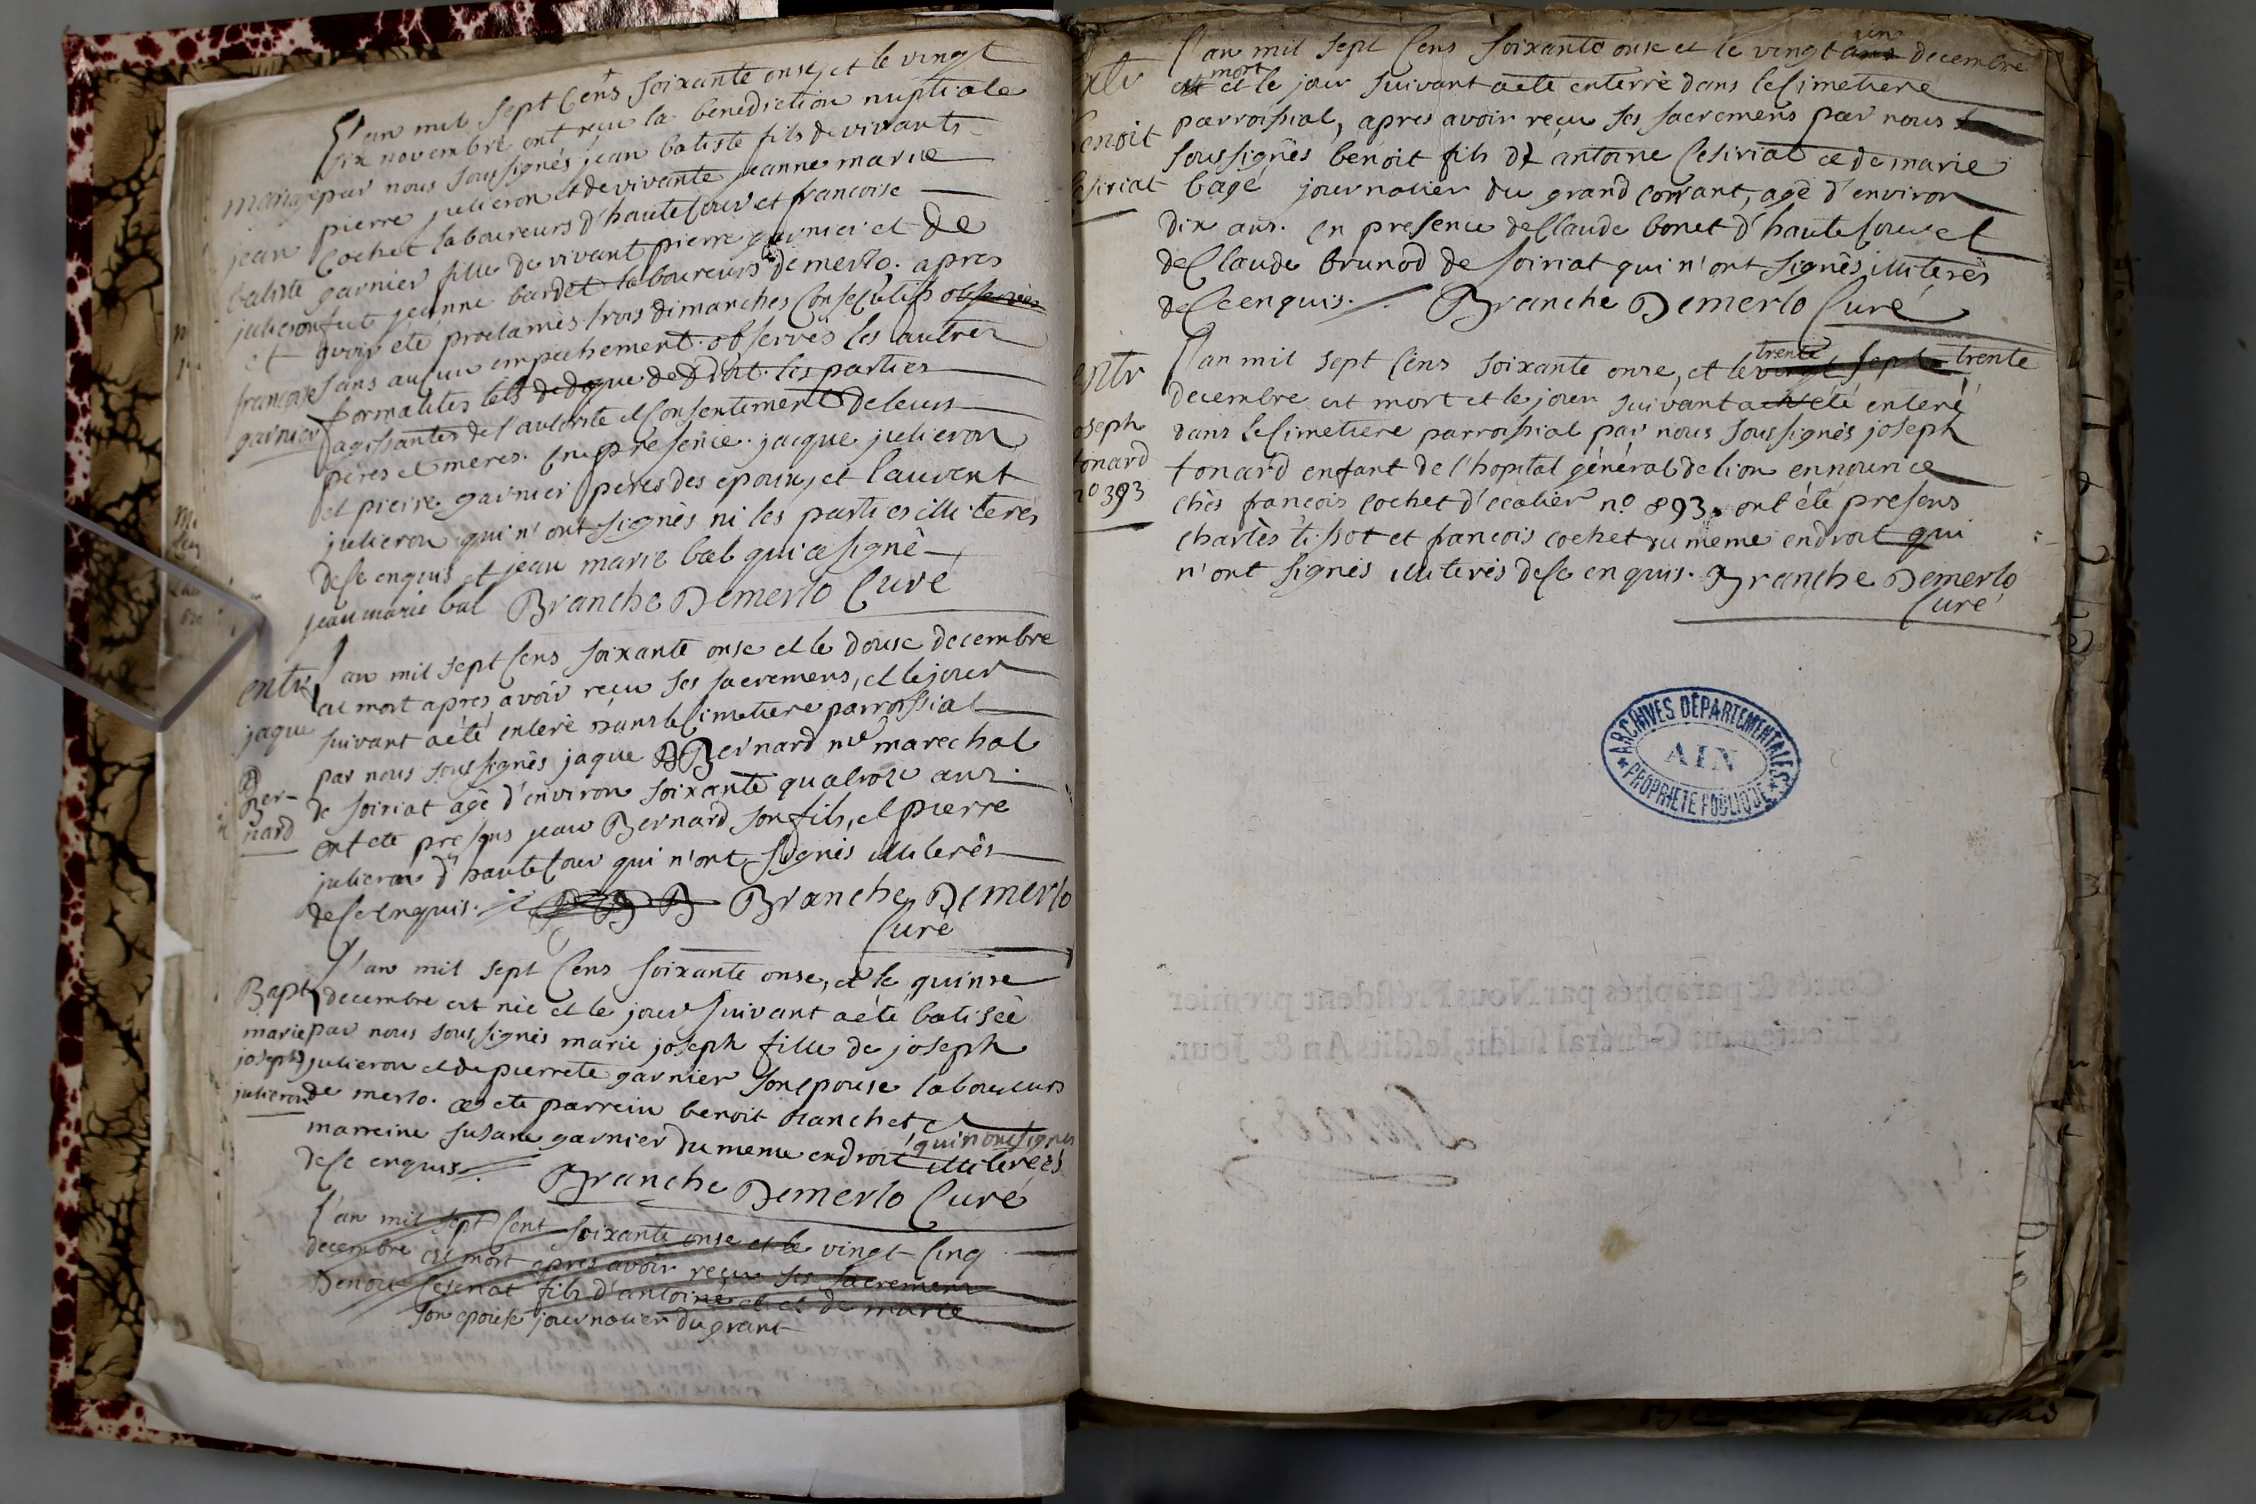 l'an mil sept Cens soixante onse, et le vingt
six novembre ont reçu la benediction nuptiale
mariage par nous soussignés jean batiste fils de vivants
jean pierre julieron et de vivante jeanne marie
cochet laboureurs d'hautecour et francoise
batiste garnier fille de vivant pierre garnier et de
julieron feüe jeanne bardet laboureurs de merlo. apres
et avoir eté proclamés trois dimanches Consecutifs observées
sans aucun empechement. observés les autres
francoise formalités tels de dogue de Droit. les parties
garnier agissantes de l'autorité et Consentement de leurs
peres et meres. En presence. jacque julieron
et pierre garnier peres des epoux, et laurent
julieron qui n'ont signés ni les parties illiterés
de ce enquis et jean marie bal qui a signé
jean marie bal Branche Demerlo Curé
entr l'an mil sept Cens soixante onse et le douse decembre
est mort apres avoir reçu ses sacremens, et le jour
jaque suivant a été enteré dans le Cimetiere parroissial
par nous soussignés jaque B Bernard me marechal
Ber- de soiriat agé d'environ soixante quatorse ans.
nard ont eté presens jean Bernard son fils, et pierre
julieron d'hautecour qui n'ont signés illiterés
de ce enquis. Branche Demerlo
Curé
l'an mil sept Cens soixante onse, et le quinse
Bapt decembre est née et le jour suivant a été batisée
marie par nous soussignés marie joseph fille de joseph
joseph julieron et de pierrete garnier son epouse laboureurs
julieron de merlo. a eté parrein benoit blanchet et
marreine susane garnier du meme endroit qui n'ont signés
illiterées
de ce enquis. Branche Demerlo Curé
l'an mil sept Cent soixante onse et le vingt Cinq
decembre est mort apres avoir reçu ses sacremens
Benoit Cesiriat fils d'antoine et et de marie
son epouse journalier du grant
l'an mil sept Cens soixante onse et le vingt un decembre
est mort et le jour suivant a eté enterré dans le Cimetiere
enoit parroissial, apres avoir reçu ses sacremens par nous
soussignés benoit fils de antoine Cesiriat et de marie
esiriat bagé journalier du grand corrant, agé d'environ
dix ans. en presence de Claude bonet d'hautecour et
de Claude brunod de soiriat qui n'ont signés illiterés
de Ce enquis. Branche Demerlo Curé
entr l'an mil sept Cens soixante onse, et le vingt sept trente trente
decembre est mort et le jour suivant a eté enteré
oseph dans le Cimetiere parroissial par nous soussignés joseph
tonard tonard enfant de l'hopital général de lion en nourice
no 393 chés francois cochet d'ecolier no. 893. ont été presens
charles tissot et francois cochet du meme endroit qui
n'ont signés illiterés de Ce enquis. Branche Demerlo
Curé
ARCHIVES DÉPARTEMENTALES
AIN
PROPRIÉTÉ PUBLIQUE